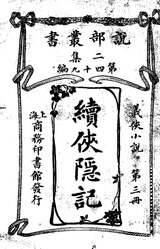 說部叢書
第二集第四十九編
義俠小說 第三冊
續俠隱記
上海商務印書館發行